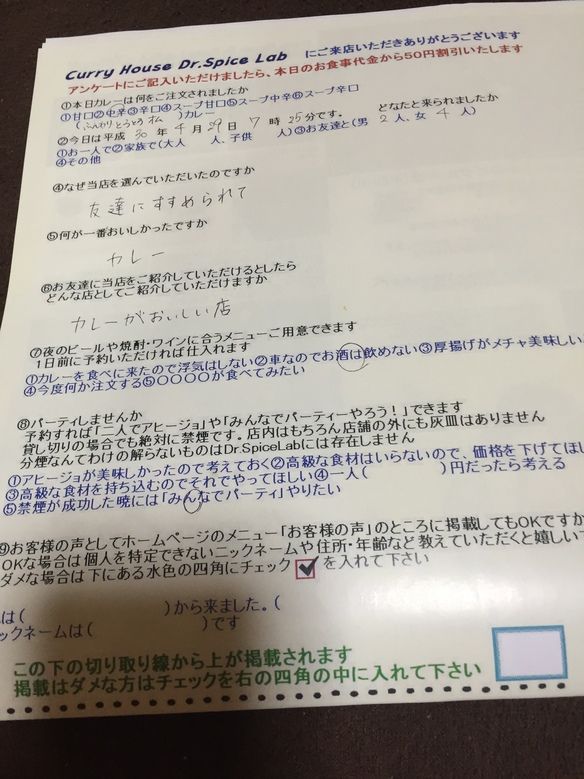 Curry House Dr.Spice Lab にご来店いただきありがとうございます
アンケートにご記入いただけましたら、本日のお食事代金から50円割引いたします
①本日カレーは何をご注文されましたか
①甘口②中辛③辛口④スープ甘口⑤スープ中辛⑥スープ辛口
(ふんわりとろとろオム )カレー
②今日は平成 30 年 4 月 29 日 7 時 25分です。 どなたと来られましたか
①お一人で②家族で(大人 人、子供 人)③お友達と(男 2 人、女 4 人)
④その他
④なぜ当店を選んでいただいたのですか
友達にすすめられて
⑤何が一番おいしかったですか
カレー
⑥お友達に当店をご紹介していただけるとしたら
どんな店としてご紹介していただけますか
カレーがおいしい店
⑦夜のビールや焼酎・ワインに合うメニューご用意できます
1日前に予約いただければ仕入れます
①カレーを食べに来たので浮気はしない②車なのでお酒は飲めない③厚揚げがメチャ美味しい
④今度何か注文する⑤〇〇〇〇が食べてみたい
⑧パーティしませんか
予約すれば「二人でアヒージョ」や「みんなでパーティーやろう！」できます
貸し切りの場合でも絶対に禁煙です。店内はもちろん店舗の外にも灰皿はありません
分煙なんてわけの解らないものはDr.SpiceLabには存在しません
①アヒージョが美味しかったので考えておく②高級な食材はいらないので、価格を下げてほ
③高級な食材を持ち込むのでそれでやってほしい④一人( )円だったら考える
⑤禁煙が成功した暁には「みんなでパーティ」やりたい
⑨お客様の声としてホームページのメニュー「お客様の声」のところに掲載してもOKですか
OKな場合は個人を特定できないニックネームや住所・年齢など教えていただくと嬉しいで
ダメな場合は下にある水色の四角にチェック を入れて下さい
は( )から来ました。(
ックネームは( )です
この下の切り取り線から上が掲載されます
掲載はダメな方はチェックを右の四角の中に入れて下さい